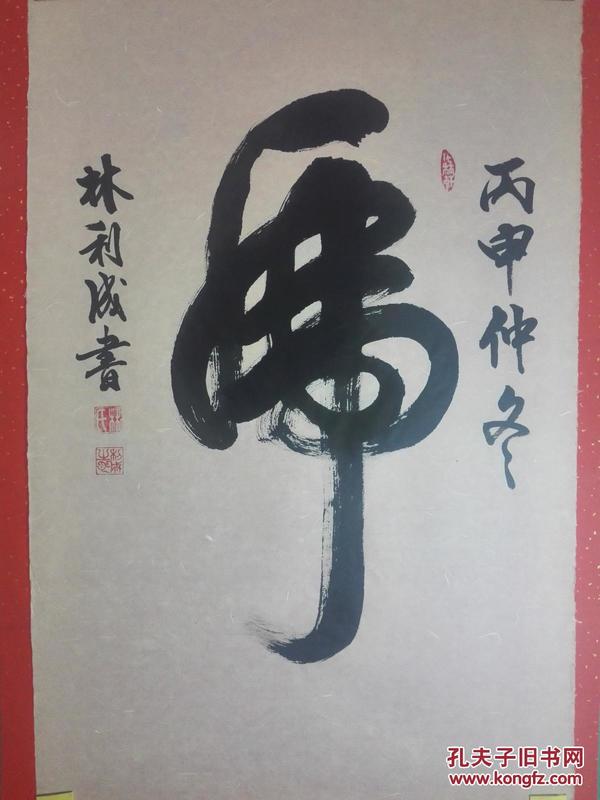 丙申仲冬
虎
林利成書
孔夫子旧书网
www.kongfz.com